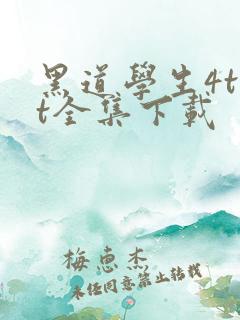 黑道學生4t
t全集下載
梅惠杰
未經同意禁止轉載